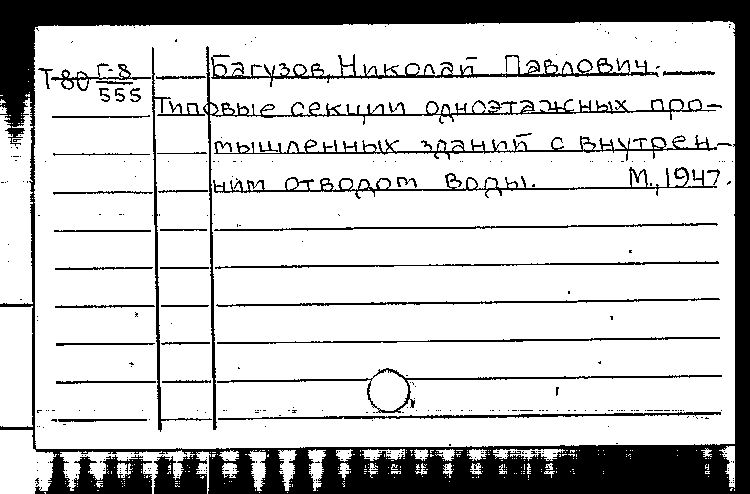 Т-80 Г-8/555 Багузов, Николай Павлович.
Типовые секции одноэтажных про-
мышленных зданий с внутрен-
ним отводом воды. М., 1947.